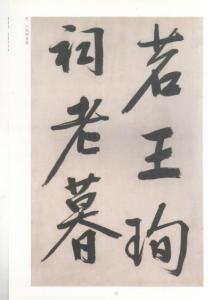 若王珣
祠老暮